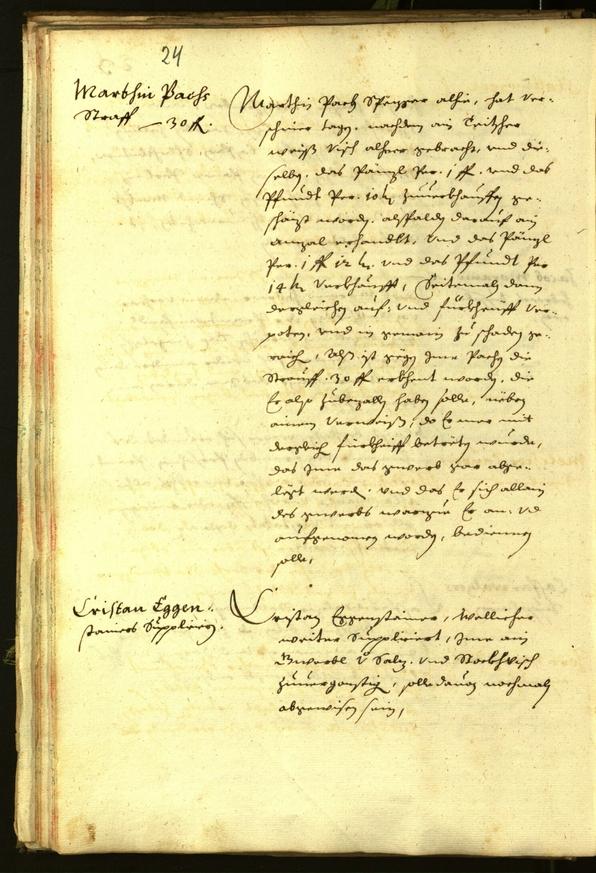 24
Marthin Pachs
Straff — 30 fl.
Marthin Pach Spörer alhie, hat ver-
schiner tagn. nachdem ain Teitscher
weiß Visch alheer gebracht, und die-
selbn. das Pänzl Per. 1 fl. und das
Pfundt Per. 10 kr zuuerkhauffn ge-
schäzt wordn. alspaldn darauf ain
anzal erhandlt, und das Pänzl
Per. 1 fl 12 kr. und das Pfundt Per
14 kr verkhaufft, Seitemaln dann
dergleichn auf: und fürkheuff ver-
poten, und in gemain zu schaden ge-
raich, Alß ist gegn Ime Pachn die
Straff. 30 fl erkhent wordn, die
Er alßo zubezalln haben solle, neben
ainem Verweiß, do Er mer mit
derglich fürkheiff betretn wurde,
das Ime das gwerb gar abge-
legt werd. und das Er sich allain
des gwerbs warzue Er an: vnd
aufgenomen wordn, bedienen
solle,
Cristan Eggen-
stainers Supplicirn.
Cristan Eggenstainer, wellicher
weiter Suppliciert, Ime ain
Gwerbl Salz. und Stockhvisch
zuuergonstign, solle dauon nochmaln
abgewisen sein,